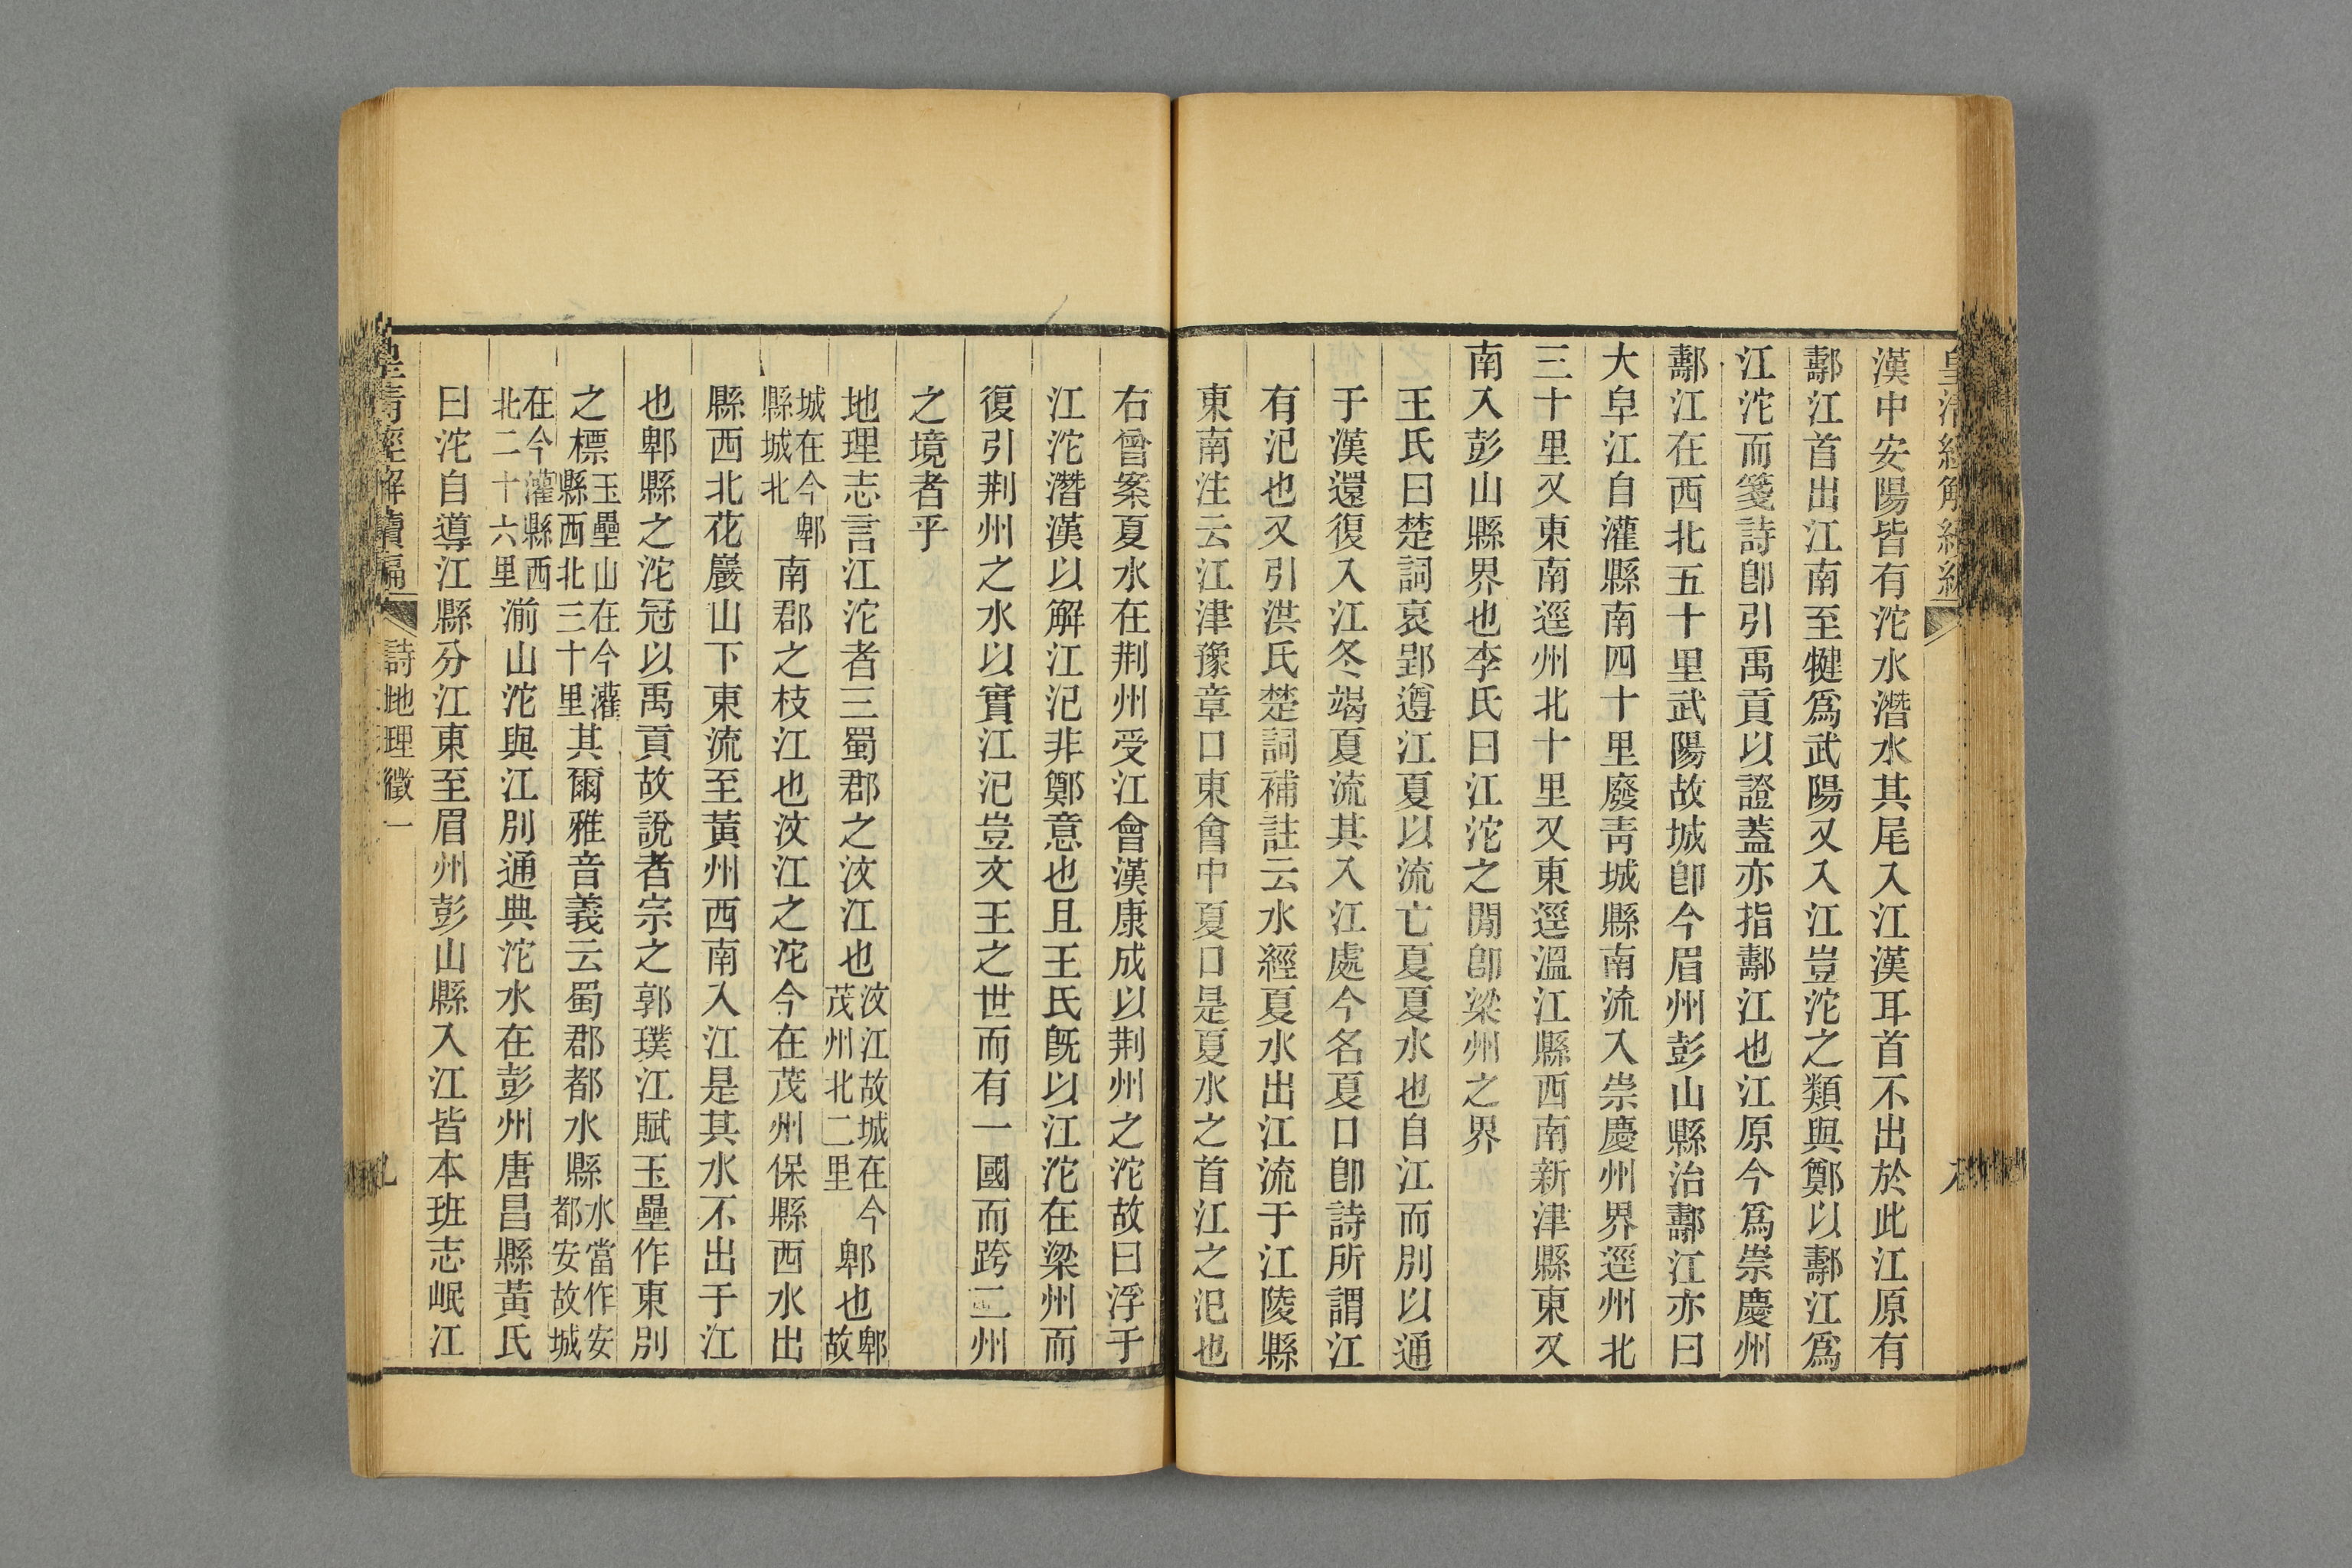 漢中安陽皆有沱水潛水其尾入江漢耳首不出於此江原有
鄿江首出江南至犍爲武陽又入江豈沱之類與鄭以鄿江爲
江沱而箋詩卽引禹貢以證蓋亦指鄿江也江原今爲崇慶州
鄿江在西北五十里武陽故城卽今眉州彭山縣治鄿江亦曰
大皁江自灌縣南四十里廢靑城縣南流入崇慶州界逕州北
三十里又東南逕州北十里又東逕溫江縣西南新津縣東又
南入彭山縣界也李氏曰江沱之閒卽梁州之界
王氏曰楚詞哀郢遵江夏以流亡夏夏水也自江而別以通
于漢還復入江冬竭夏流其入江處今名夏口卽詩所謂江
有汜也又引洪氏楚詞補註云水經夏水出江流于江陵縣
東南注云江津豫章口東會中夏口是夏水之首江之汜也
右曾案夏水在荆州受江會漢康成以荆州之沱故曰浮于
江沱潛漢以解江汜非鄭意也且王氏旣以江沱在梁州而
復引荆州之水以實江汜豈文王之世而有一國而跨二州
之境者乎
地理志言江沱者三蜀郡之汶江也汶江故城在今茂州北二里郫也郫故
城在今郫縣城北南郡之枝江也汶江之沱今在茂州保縣西水出
縣西北花巖山下東流至黃州西南入江是其水不出于江
也郫縣之沱冠以禹貢故說者宗之郭璞江賦玉壘作東別
之標玉壘山在今灌縣西北三十里其爾雅音義云蜀郡都水縣水當作安都安故城
在今灌縣西北二十六里湔山沱與江別通典沱水在彭州唐昌縣黃氏
曰沱自導江縣分江東至眉州彭山縣入江皆本班志岷江
皇淸經解續編
詩地理徵一